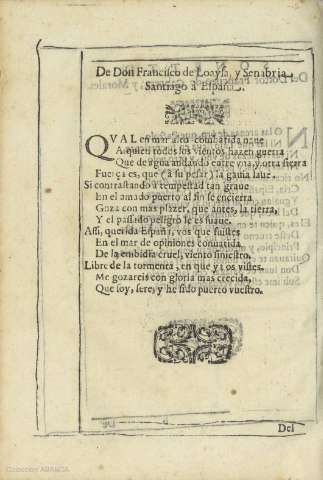 De Don Francisco de Loaysa, y Senabria
Santiago a España.
QVAL en mar alto combatida naue
A quien todos los vientos hazen guerra
Que de agua andando entre vna, y otra sierra
Fuerça es, que (a su pesar) la gauia laue.
Si contrastando a tempestad tan graue
En el amado puerto al fin se encierra
Goza con mas plazer, que antes, la tierra,
Y el passado peligro le es suaue.
Assi, querida España, vos que fuistes
En el mar de opiniones combatida
De la embidia cruel, viento siniestro.
Libre de la tormenta, en que ya os vistes
Me gozareis con gloria mas crecida,
Que soy, sere, y he sido puerto vuestro.
Del
Colección ABANCA